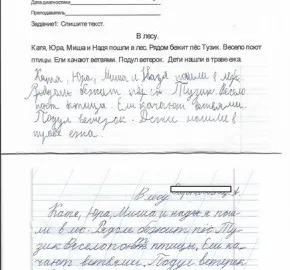 Дата диагностики
Преподаватель
Задание1: Спишите текст.
В лесу.
Катя, Юра, Миша и Надя пошли в лес. Рядом бежит пёс Тузик. Весело поют
птицы. Ели качают ветвями. Подул ветерок. Дети нашли в траве ежа.
Катя, Юра, Миша и Надя пошли в лес
бежит пёс Тузик
птица. Ели качают ветвями.
Подул ветерок. Дети нашли в
траве
В лесу
Катя, Юра, Миша и надя пош
ли в ло. Рядом бжит пёс Ту-
зик Весело птицы. Ели ка-
чают ветвями. Подул ветерок